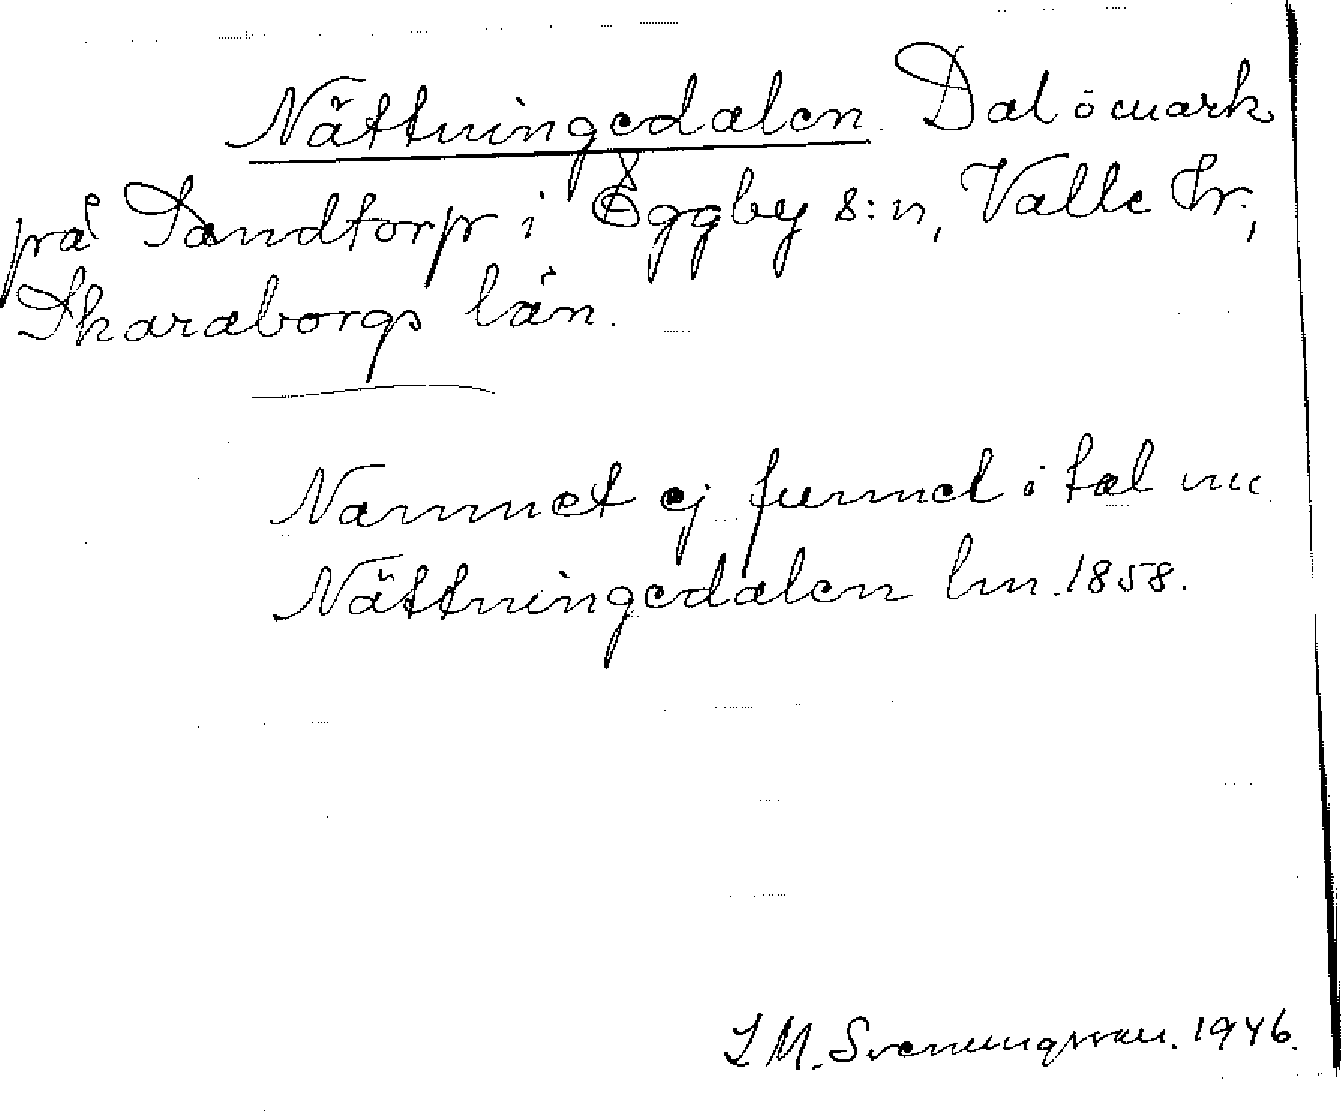 Nättningedalen. Dal o mark
på Sandtorp i Eggby s:n, Valle hr.,
Skaraborgs län.
Namnet ej funnet i tal nu
Nättningedalen lm. 1858.
S M. Svenungsson. 1946.